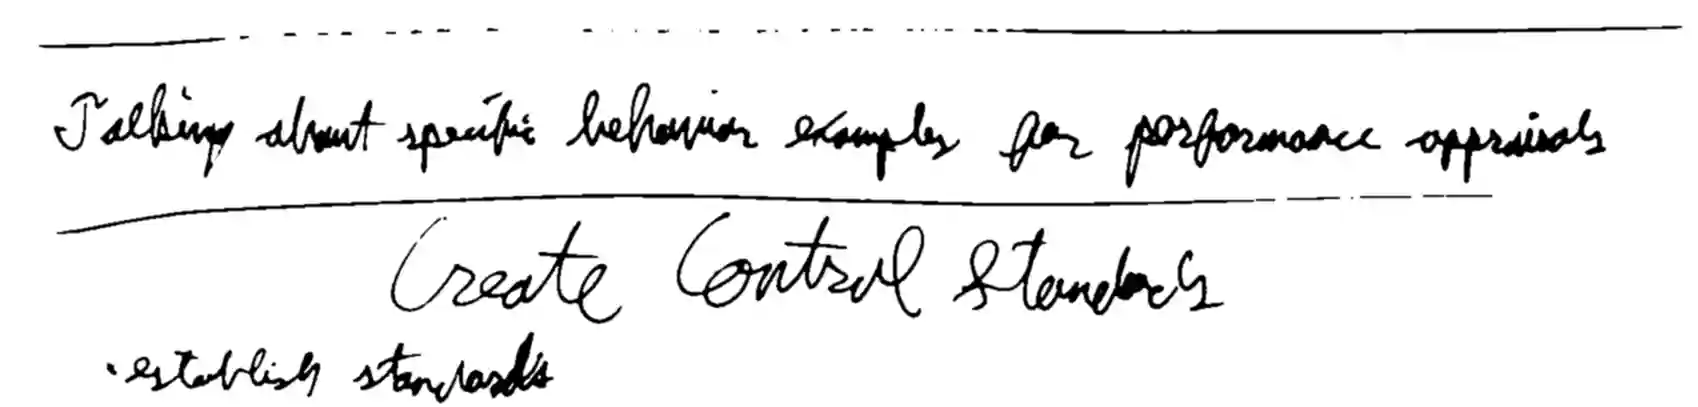 Talking about specific behavior examples for performance appraisals
Create Control Standards
• establish standards